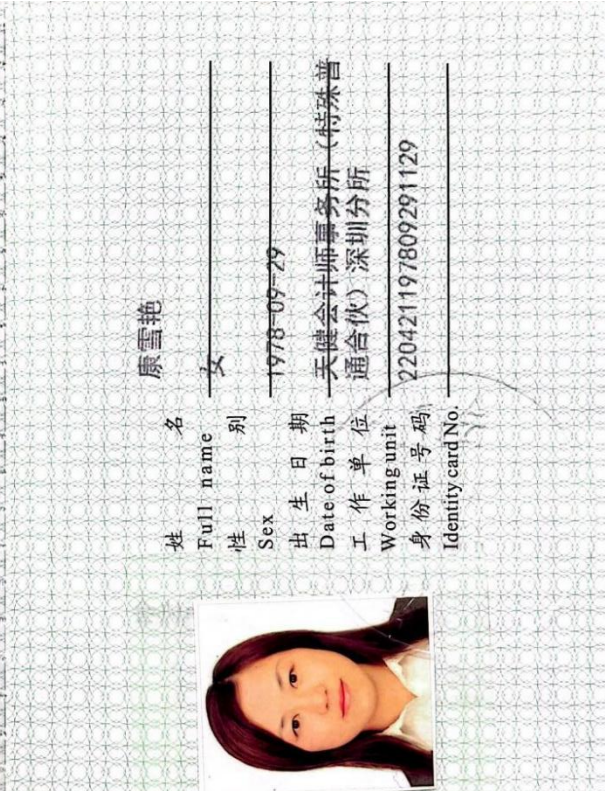 姓 名 康雪艳
Full name
性 别 女
Sex
出 生 日 期 1978-09-29
Date of birth 天健会计师事务所（特殊普
工 作 单 位 通合伙）深圳分所
Working unit
身 份 证 号 码 220421197809291129
Identity card No.